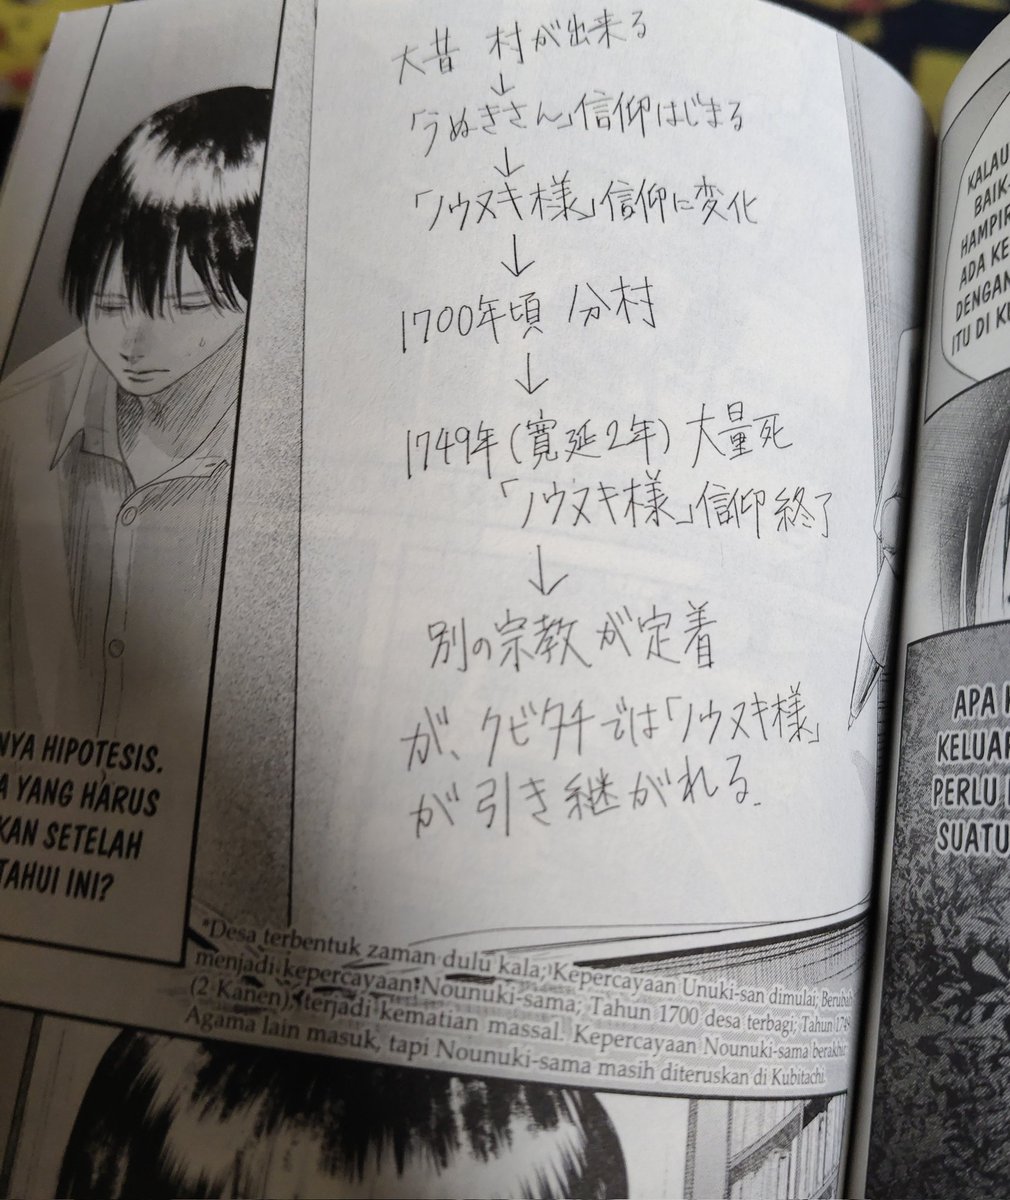 大昔 村が出来る
↓
「うぬきさん」信仰はじまる
↓
「ノウヌキ様」信仰に変化
↓
1700年頃 分村
↓
1749年(寛延2年) 大量死
「ノウヌキ様」信仰終了
↓
別の宗教が定着
が、クビタチでは「ノウヌキ様」
が引き継がれる.
NYA HIPOTESIS.
A YANG HARUS
KAN SETELAH
TAHUI INI?
*Desa terbentuk zaman dulu kala; Kepercayaan Unuki-san dimulai; Berubah
menjadi kepercayaan Nounuki-sama; Tahun 1700 desa terbagi; Tahun 1749
(2 Kanen), terjadi kematian massal. Kepercayaan Nounuki-sama berakhir
Agama lain masuk, tapi Nounuki-sama masih diteruskan di Kubitachi.
KALAU
BAIK-
HAMPIR
ADA KE
DENGAN
ITU DI KU
APA K
KELUAR
PERLU
SUATU